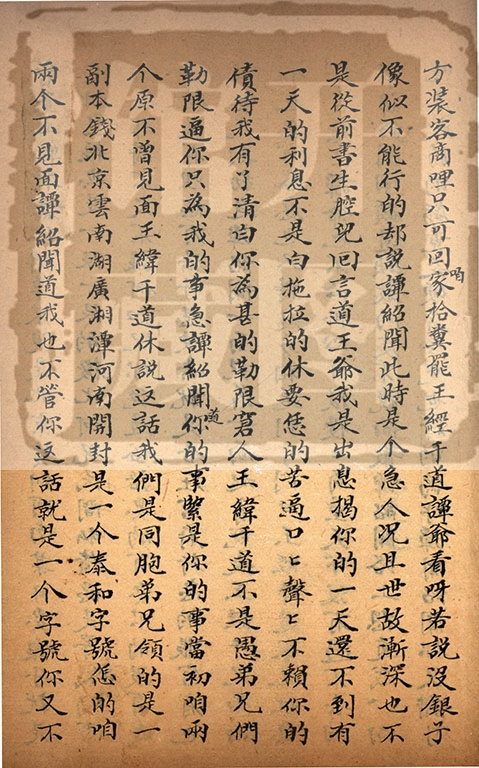 方裝客商哩只可回家喲拾糞罷王經千道譚爺看呀若說沒銀子
像似不能行的却說譚紹聞此時是个急人况且世故漸深也不
是從前書生腔兒回言道王爺我是出息揭你的一天還不到有
一天的利息不是白拖拉的休要恁的苦逼口匕聲匕不賴你的
債待我有了清白你為甚的勒限窘人王緯千道不是愚弟兄們
勒限逼你只為我的事急譚紹聞道你的事緊是你的事當初咱兩
个原不曾見面王緯千道休說这話我們是同胞弟兄領的是一
副本錢北京雲南湖廣湘潭河南開封是一个泰和字號恁的咱
兩个不見面譚紹聞道我也不管你这話就是一个字號你又不